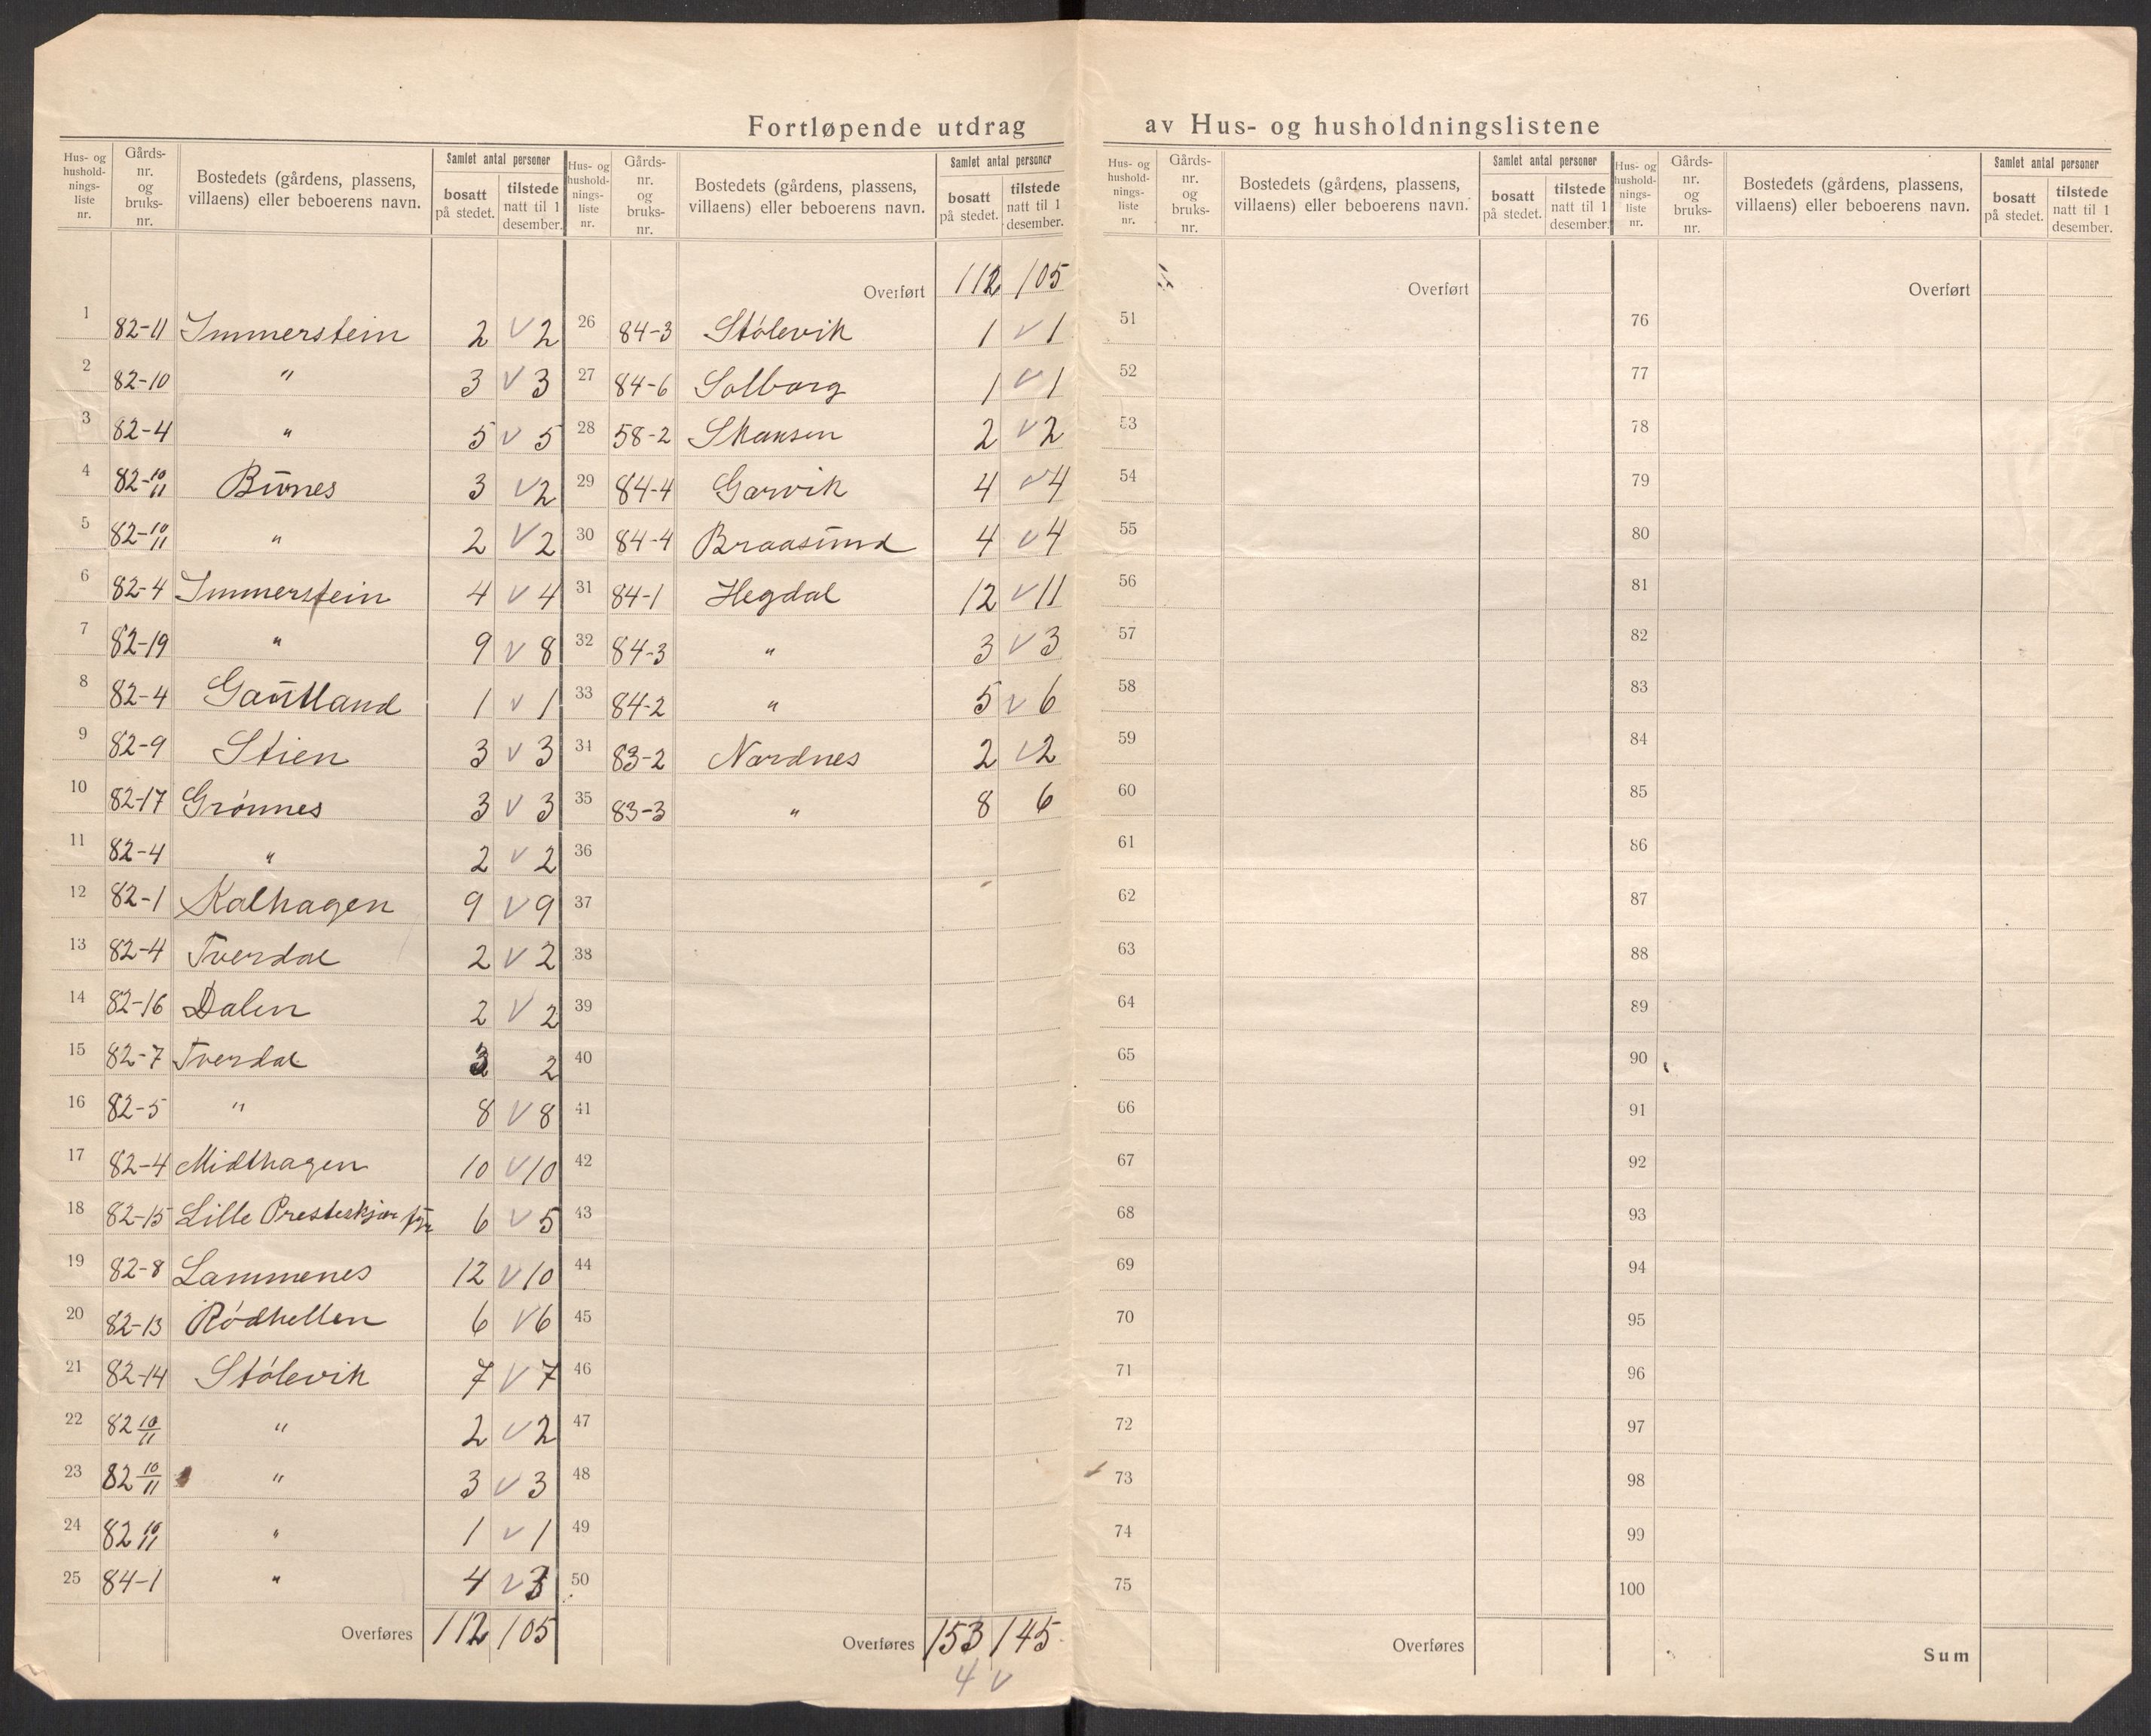 Fortløpende utdrag av Hus- og husholdningslistene
Hus- og hushold-nings-liste nr. Gårds-nr. og bruks-nr. Bostedets (gårdens, plassens, villaens) eller beboerens navn. Samlet antal personer bosatt på stedet. tilstede natt til 1 desember.
1 82-11 Immerstein 2 V 2
2 82-10 " 3 V 3
3 82-4 " 5 V 5
4 82-10/11 Bunes 3 V 2
5 82-10/11 " 2 V 2
6 82-4 Immerstein 4 V 4
7 82-19 " 9 V 8
8 82-4 Gautland 1 V 1
9 82-9 Stien 3 V 3
10 82-17 Grönnes 3 V 3
11 82-4 " 2 V 2
12 82-1 Kalhagen 9 V 9
13 82-4 Tverdal 2 V 2
14 82-16 Dalen 2 V 2
15 82-7 Tverdal 3 2
16 82-5 " 8 V 8
17 82-4 Midthagen 10 V 10
18 82-15 Lille Presteskjær fyr 6 V 5
19 82-8 Lammenes 12 V 10
20 82-13 Rödhellen 6 V 6
21 82-14 Stölevik 7 V 7
22 82 10/11 " 2 V 2
23 82 10/11 " 3 V 3
24 82 10/11 " 1 V 1
25 84-1 " 4 V 3
Overføres 112 105
Hus- og hushold-nings-liste nr. Gårds-nr. og bruks-nr. Bostedets (gårdens, plassens, villaens) eller beboerens navn. Samlet antal personer bosatt på stedet. tilstede natt til 1 desember.
Overført 112 105
26 84-3 Stölevik 1 V 1
27 84-6 Solborg 1 V 1
28 58-2 Skansen 2 V 2
29 84-4 Garvik 4 V 4
30 84-4 Braasund 4 V 4
31 84-1 Hegdal 12 V 11
32 84-3 " 3 V 3
33 84-2 " 5 V 6
34 83-2 Nordnes 2 V 2
35 83-3 " 8 6
36
37
38
39
40
41
42
43
44
45
46
47
48
49
50
Overføres 153 145
4 V
Hus- og hushold-nings-liste nr. Gårds-nr. og bruks-nr. Bostedets (gårdens, plassens, villaens) eller beboerens navn. Samlet antal personer bosatt på stedet. tilstede natt til 1 desember.
Overført
51
52
53
54
55
56
57
58
59
60
61
62
63
64
65
66
67
68
69
70
71
72
73
74
75
Overføres
Hus- og hushold-nings-liste nr. Gårds-nr. og bruks-nr. Bostedets (gårdens, plassens, villaens) eller beboerens navn. Samlet antal personer bosatt på stedet. tilstede natt til 1 desember.
Overført
76
77
78
79
80
81
82
83
84
85
86
87
88
89
90
91
92
93
94
95
96
97
98
99
100
Sum